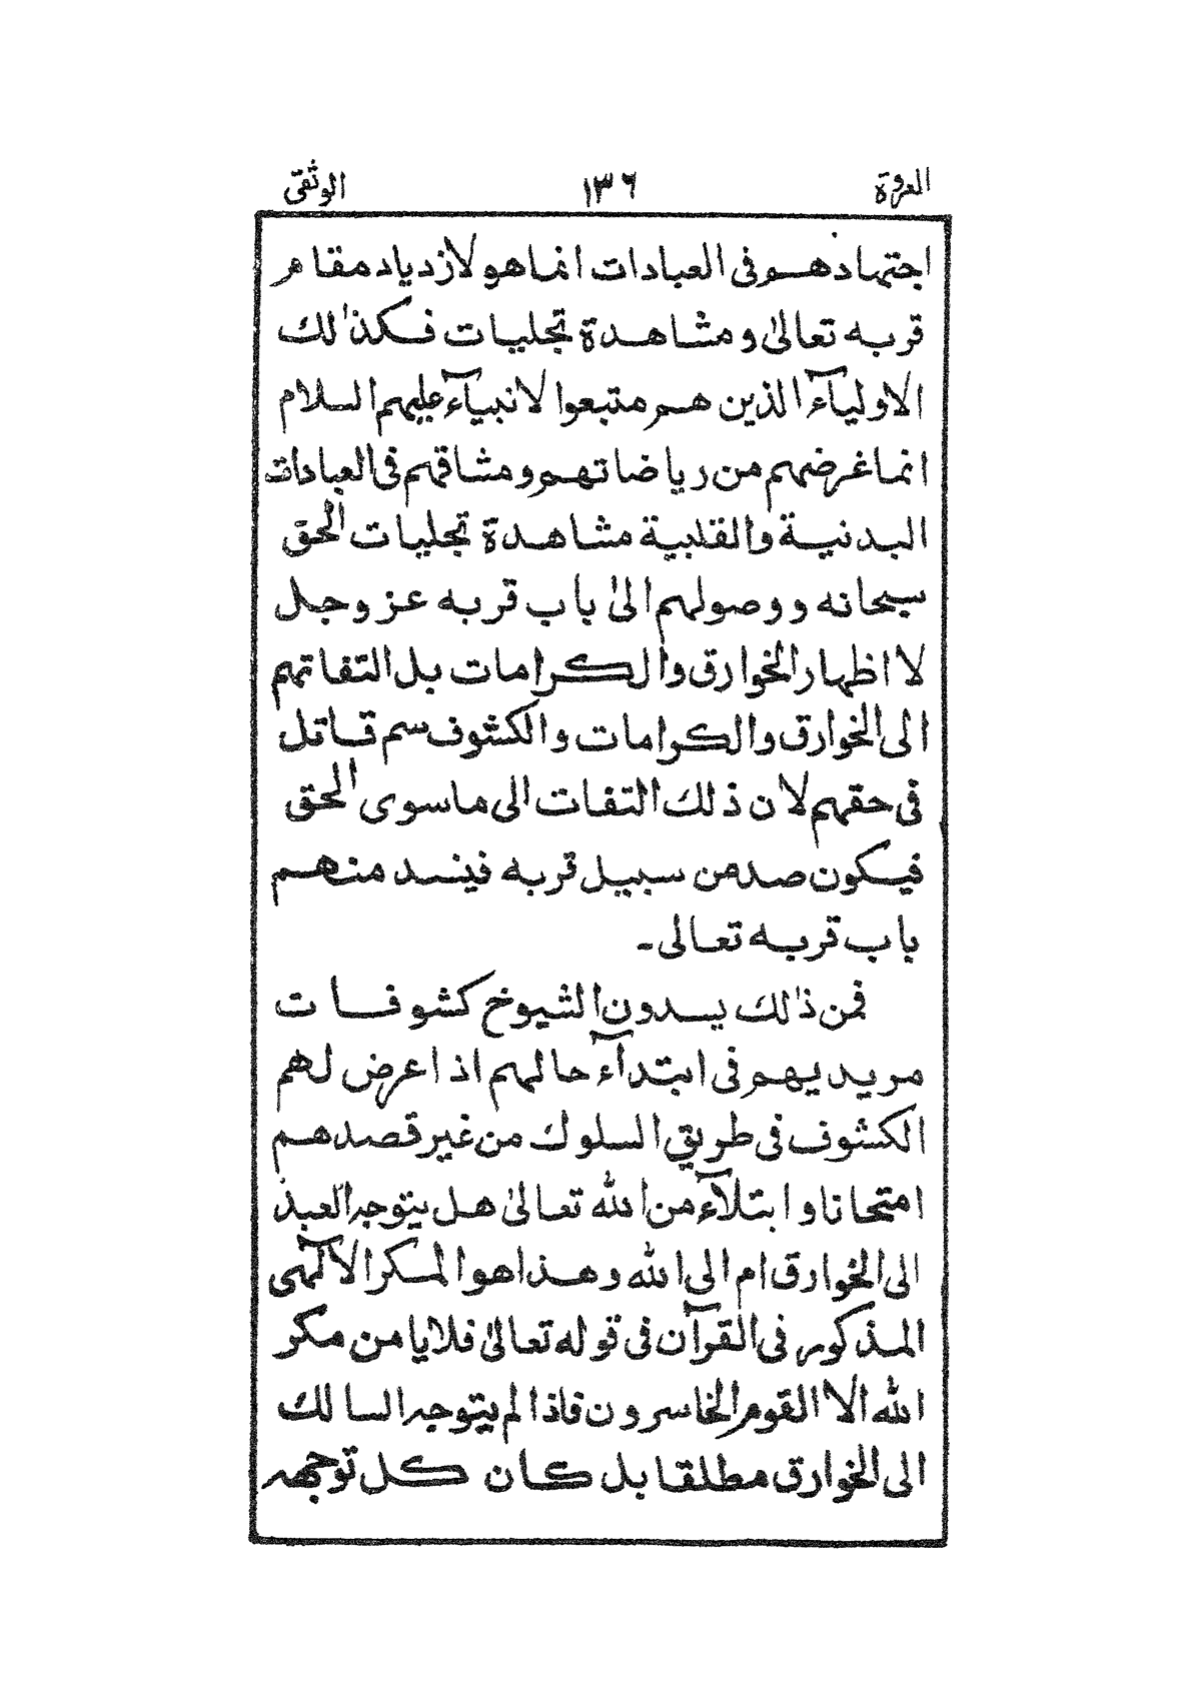 العروة ١٣٦ الوثقى
اجتهادهم فى العبادات انما هو لازدياد مقام
قربه تعالىٰ و مشاهدة تجليات فكذٰلك
الاوليآء الذين هم متبعوا لانبيآء عليهم السلام
انما غرضهم من رياضاتهم ومشاقهم فى العبادات
البدنية والقلبية مشاهدة تجليات الحق
سبحانه ووصولهم الىٰ باب قربه عز وجل
لا اظهار الخوارق والكرامات بل التفاتهم
الى الخوارق والكرامات والكشوف سم قاتل
فى حقهم لان ذلك التفات الى ماسوى الحق
فيكون صد من سبيل قربه فينسد منهم
باب قربه تعالى۔
فمن ذٰلك يسدون الشيوخ كشوفات
مريديهم فى ابتدآء حالهم اذا عرض لهم
الكشوف فى طريق السلوك من غير قصدهم
امتحانا و ابتلآء من الله تعالىٰ هل يتوجه العبد
الى الخوارق ام الى الله وهذا هو المكر الآلهى
المذكور فى القرآن فى قوله تعالىٰ فلا يامن مكر
الله الا القوم الخاسرون فاذا لم يتوجه السالك
الى الخوارق مطلقا بل كان كل توجهه